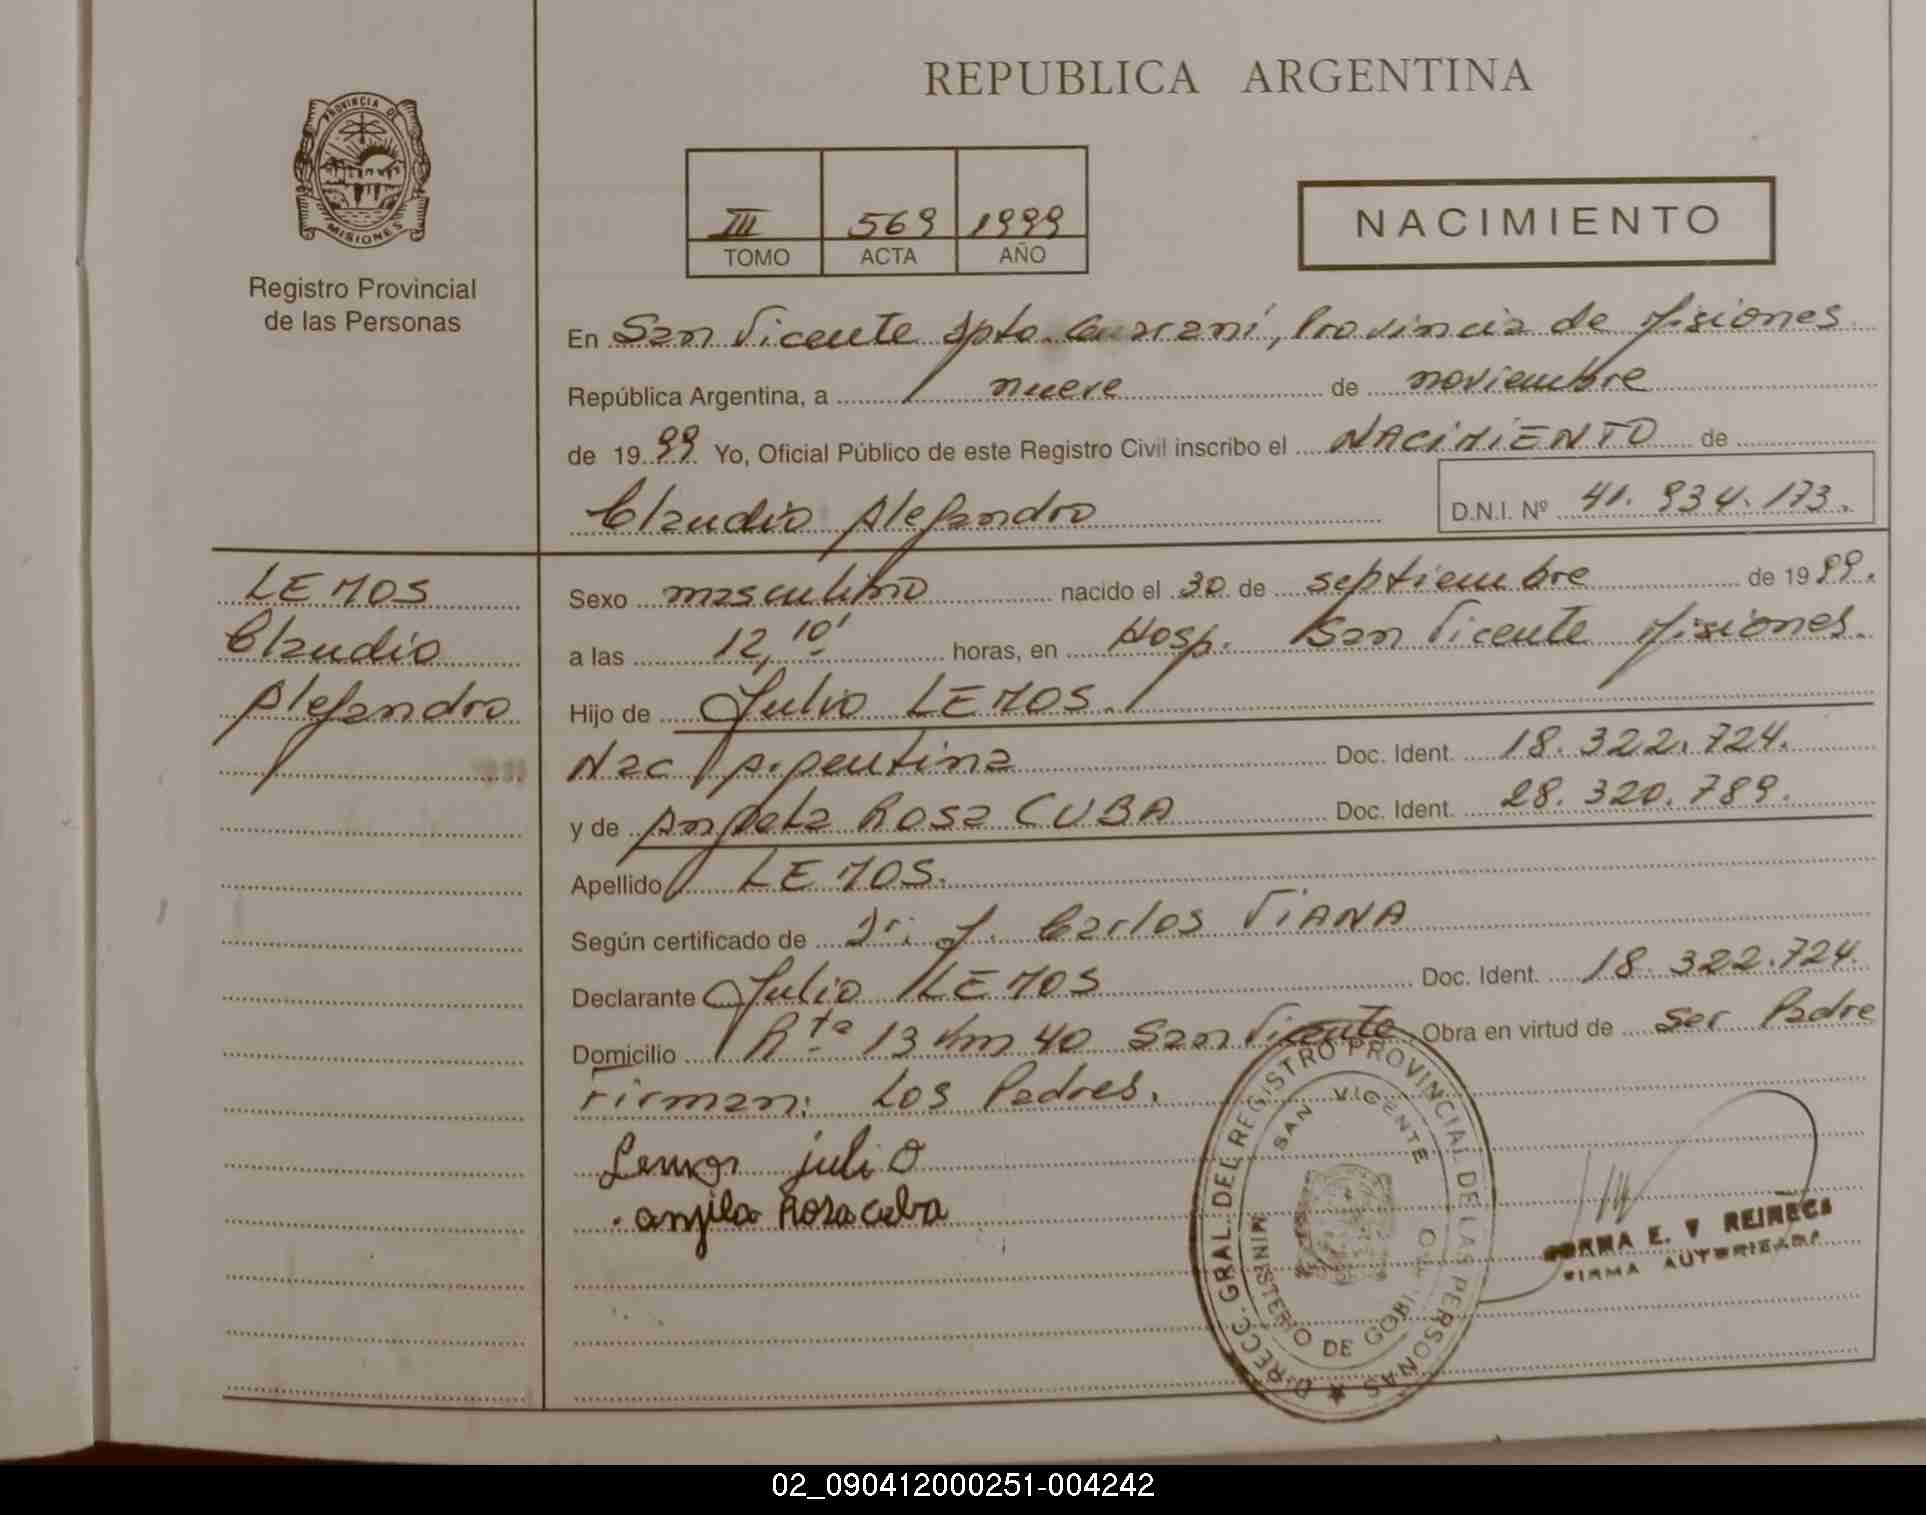 REPUBLICA ARGENTINA
PROVINCIA DE
MISIONES
Registro Provincial
de las Personas
III 569 1999
TOMO ACTA AÑO
NACIMIENTO
En San Vicente Dpto. Guaraní, Provincia de Misiones
República Argentina, a nueve de noviembre
de 1999 Yo, Oficial Público de este Registro Civil inscribo el NACIMIENTO de
Claudio Alejandro D.N.I. Nº 41.934.173.
LEMOS
Claudio
Alejandro
Sexo masculino nacido el 30 de septiembre de 1999.
a las 12,10' horas, en Hosp. San Vicente Misiones.
Hijo de Julio LEMOS.
Nac Argentina Doc. Ident. 18.322.724.
y de Angela Rosa CUBA Doc. Ident. 28.320.789.
Apellido LEMOS.
Según certificado de Dr. J. Carlos VIANA
Declarante Julio LEMOS Doc. Ident. 18.322.724.
Domicilio Rta 13 km 40 San Vicente Obra en virtud de Ser Padre
Firman: Los Padres.
Lemos juliO
anjela Rosa cuba
DIRECC. GRAL. DEL REGISTRO PROVINCIAL DE LAS PERSONAS
SAN VICENTE
MINISTERIO DE GOBI
E. V REINECK
FIRMA AUTORIZADA
02_090412000251-004242